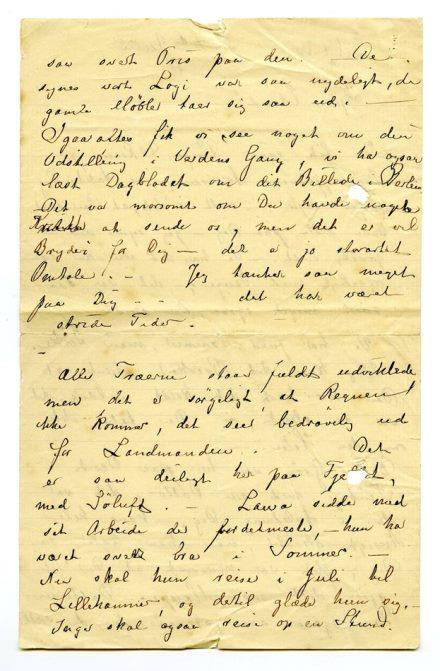 saa svært Pris paa den. — De
synes vort Logi var saa nydeligt, de
gamle Møbler taer sig saa ud. —
Igaar aftes fik vi see noget om den
Udstilling i Verdens Gang, vi har ogsaa
læst Dagbladet om dit Billede i Berlin
Det var morsomt om Du havde nogle
at sende os, men det er vel
Bryderi for Dig — det er jo
— Jeg tænker saa meget
paa Dig — - det har været
stride Tider.
—
Alle Træerne staar fuldt udviklede
men det er sørgeligt, at Regnen
ikke kommer, det seer bedrøvelig ud
for Landmanden. Det
er saa deiligt her paa
med Søluft. — Laura sidde med
sit Arbeide det fordetmeste, — hun ha
været svært bra i Sommer. —
Nu skal hun reise i Juli til
Lillehammer, og dertil glæde hun sig.
Inger skal ogsaa reise op en Stund.